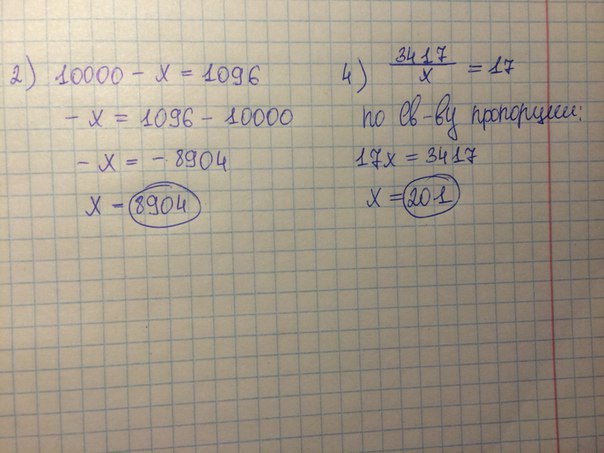 2) 10000 - x = 1096
- x = 1096 - 10000
- x = - 8904
x = 8904
4) 3417/x = 17
по св-ву пропорции:
17x = 3417
x = 201